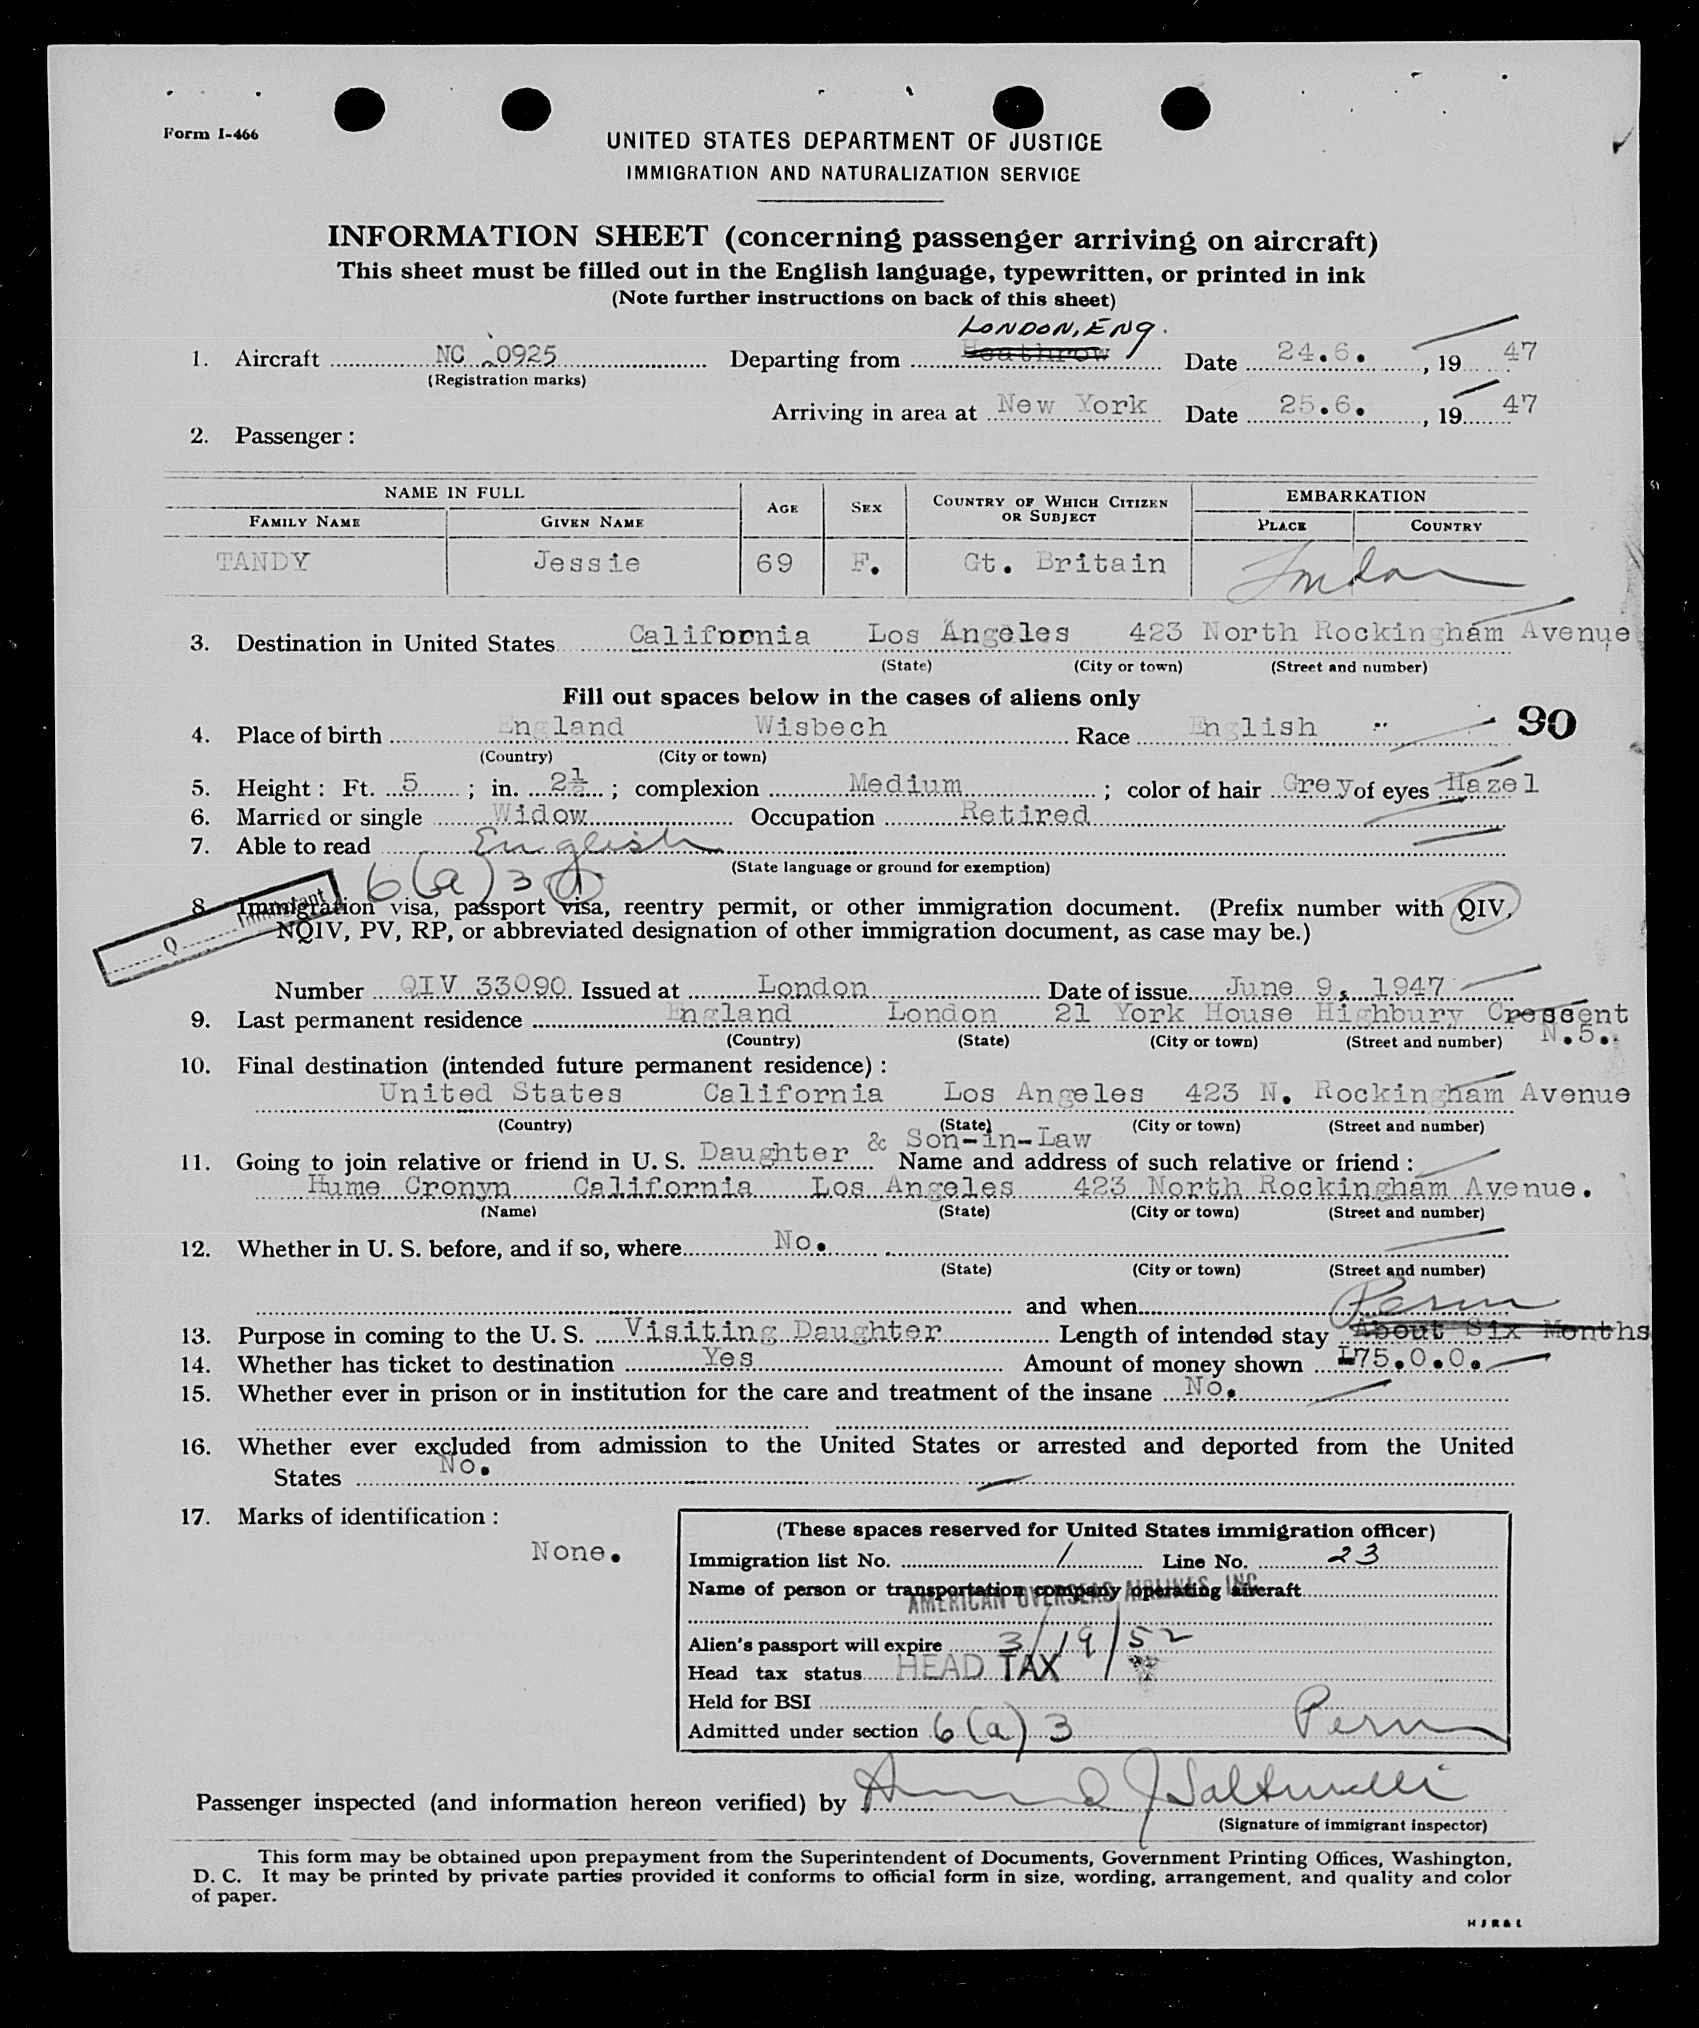 Form I-466
UNITED STATES DEPARTMENT OF JUSTICE
IMMIGRATION AND NATURALIZATION SERVICE
INFORMATION SHEET (concerning passenger arriving on aircraft)
This sheet must be filled out in the English language, typewritten, or printed in ink
(Note further instructions on back of this sheet)
LONDON, ENG.
1. Aircraft NC 0925 Departing from Heathrow Date 24.6. , 19 47
(Registration marks)
Arriving in area at New York Date 25.6. , 19 47
2. Passenger :
NAME IN FULL AGE SEX COUNTRY OF WHICH CITIZEN OR SUBJECT EMBARKATION
FAMILY NAME GIVEN NAME PLACE COUNTRY
TANDY Jessie 69 F. Gt. Britain London
3. Destination in United States California Los Angeles 423 North Rockingham Avenue
(State) (City or town) (Street and number)
Fill out spaces below in the cases of aliens only
4. Place of birth England Wisbech Race English 90
(Country) (City or town)
5. Height : Ft. 5 ; in. 2½ ; complexion Medium ; color of hair Grey of eyes Hazel
6. Married or single Widow Occupation Retired
7. Able to read English
(State language or ground for exemption)
6(a)3
Q Immigrant
8. Immigration visa, passport visa, reentry permit, or other immigration document. (Prefix number with QIV,
NQIV, PV, RP, or abbreviated designation of other immigration document, as case may be.)
Number QIV 33090 Issued at London Date of issue June 9, 1947
9. Last permanent residence England London 21 York House Highbury Crescent
(Country) (State) (City or town) (Street and number) N.5.
10. Final destination (intended future permanent residence) :
United States California Los Angeles 423 N. Rockingham Avenue
(Country) (State) (City or town) (Street and number)
11. Going to join relative or friend in U. S. Daughter & Son-in-Law Name and address of such relative or friend :
Hume Cronyn California Los Angeles 423 North Rockingham Avenue.
(Name) (State) (City or town) (Street and number)
12. Whether in U. S. before, and if so, where No.
(State) (City or town) (Street and number)
and when
Perm
13. Purpose in coming to the U. S. Visiting Daughter Length of intended stay About Six Months
14. Whether has ticket to destination Yes Amount of money shown £75.0.0.
15. Whether ever in prison or in institution for the care and treatment of the insane No.
16. Whether ever excluded from admission to the United States or arrested and deported from the United
States No.
17. Marks of identification :
None.
(These spaces reserved for United States immigration officer)
Immigration list No. 1 Line No. 23
Name of person or transportation company operating aircraft
AMERICAN OVERSEAS AIRLINES, INC.
Alien's passport will expire 3/19/52
Head tax status HEAD TAX
Held for BSI
Admitted under section 6(a)3 Perm
Passenger inspected (and information hereon verified) by
(Signature of immigrant inspector)
This form may be obtained upon prepayment from the Superintendent of Documents, Government Printing Offices, Washington,
D. C. It may be printed by private parties provided it conforms to official form in size, wording, arrangement, and quality and color
of paper.